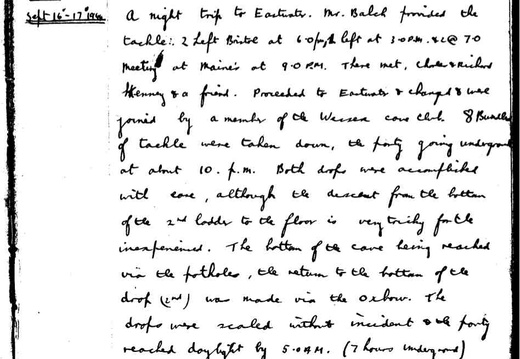 Sept 16th-17th
A night trip to Eastwater. Mr. Balch provided the
tackle. 2 left Bristol at left at 3.0 P.M.
meeting at Maine's at 9.0 P.M. There met, & Richard
Kenney & a friend. Proceeded to Eastwater & changed & were
joined by a member of the Wessex cave club. 8 Bundles
of tackle were taken down, the party going underground
at about 10. p.m. Both drops were accomplished
with ease, although the descent from the bottom
of the 2nd ladder to the floor is very tricky for the
inexperienced. The bottom of the cave being reached
via the potholes, the return to the bottom of the
drop (2nd) was made via the Oxbow. The
drops were scaled without incident & the party
reached daylight by 5.0 A.M. (7 hours underground)